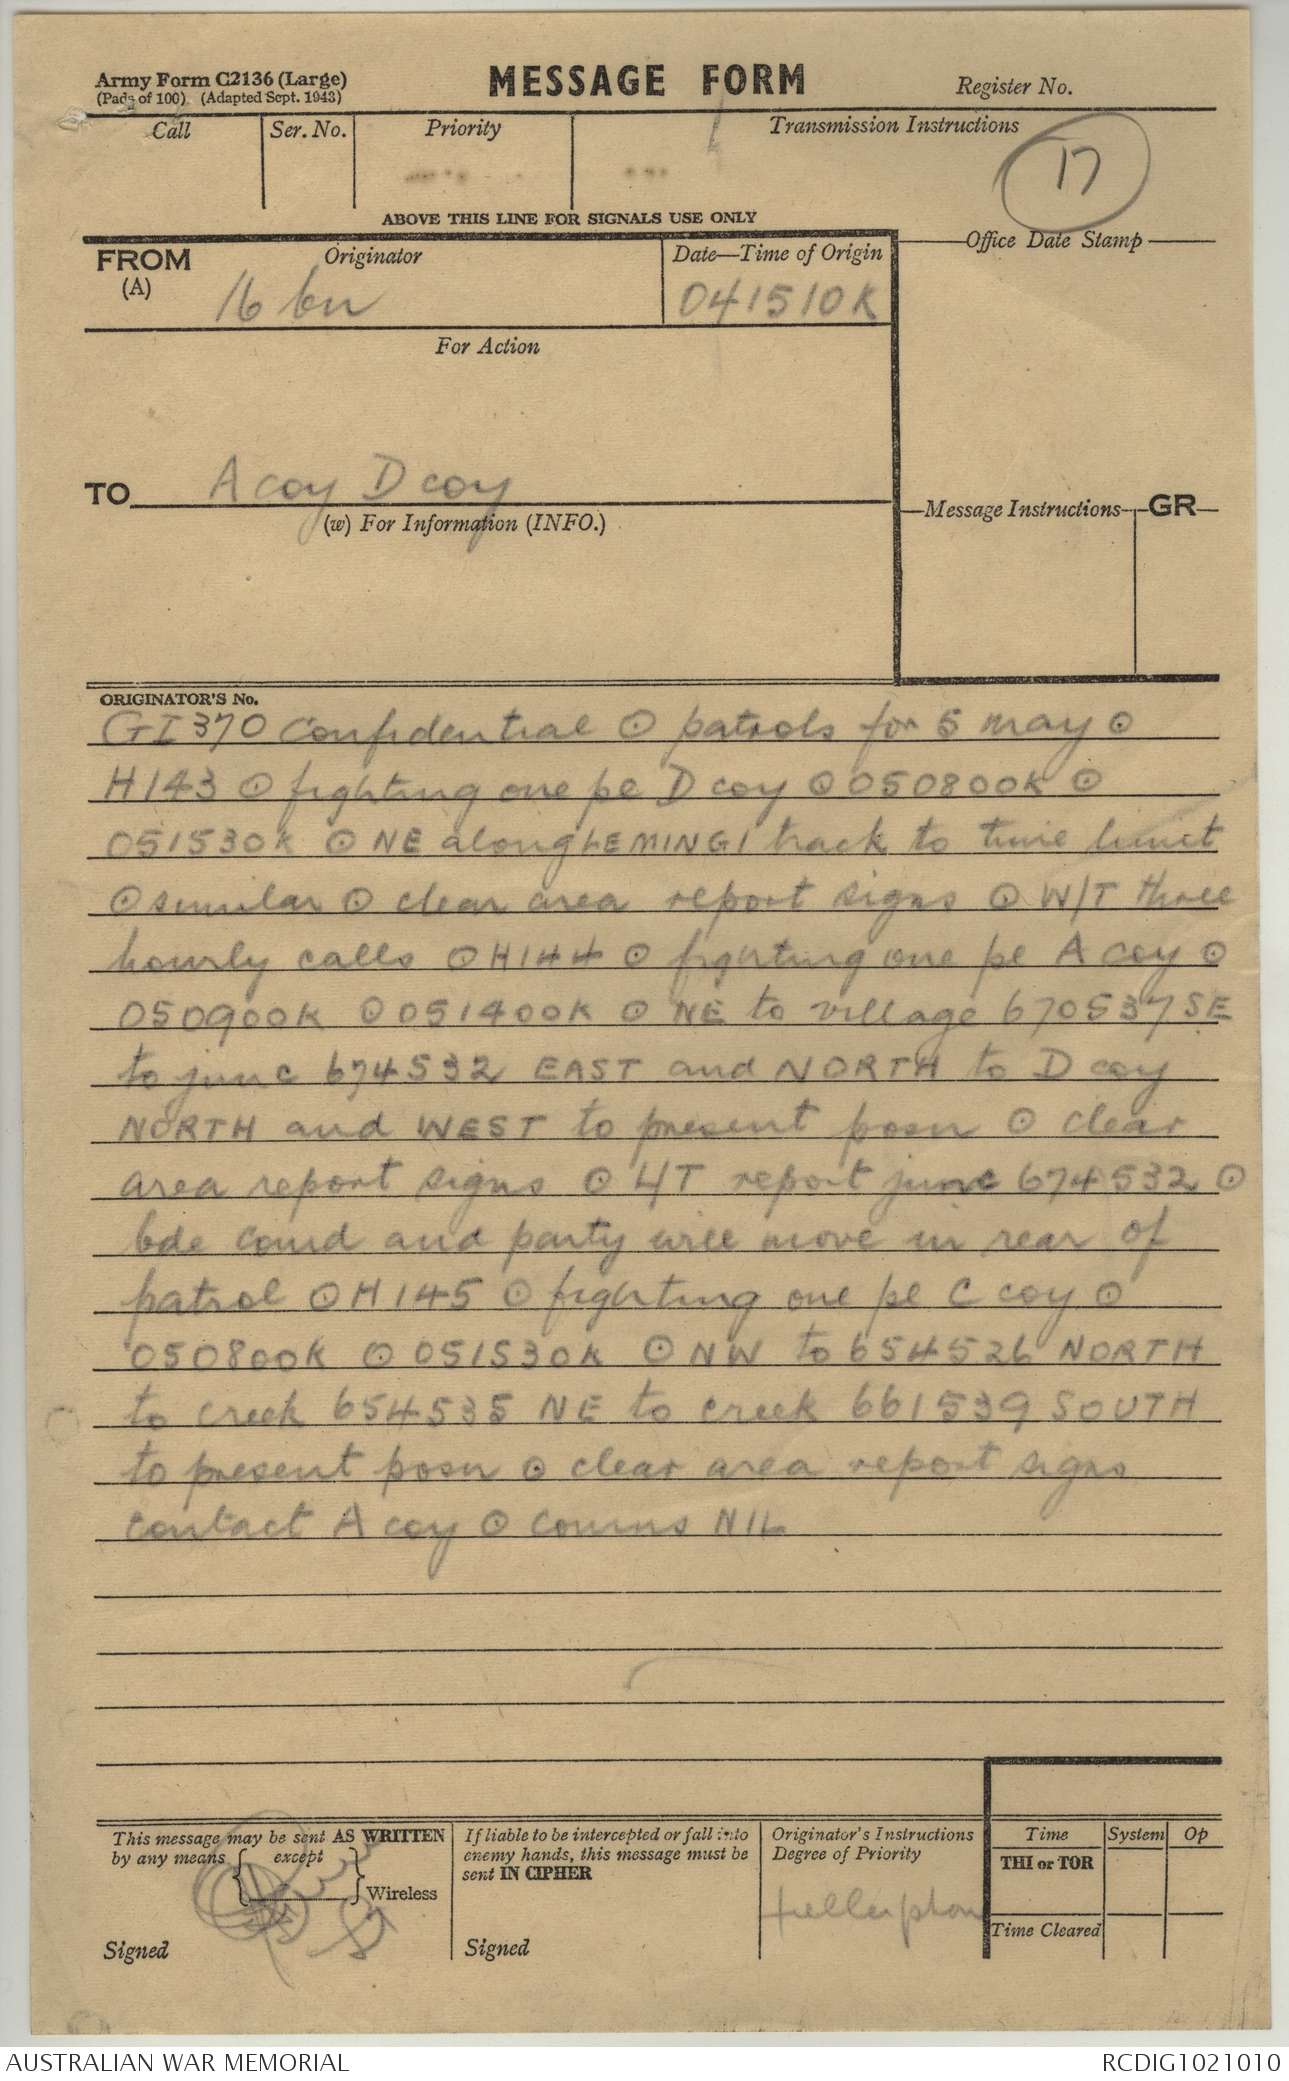 Army Form C2136 (Large)
(Pads of 100) (Adapted Sept. 1943)
MESSAGE FORM
Register No.
Call
Ser. No.
Priority
Transmission Instructions
17
ABOVE THIS LINE FOR SIGNALS USE ONLY
FROM
(A)
Originator
16 bn
Date—Time of Origin
041510K
Office Date Stamp
For Action
TO A coy D coy
(w) For Information (INFO.)
Message Instructions
GR
ORIGINATOR'S No.
GI370 Confidential ⊙ patrols for 5 may ⊙
H143 ⊙ fighting one pl D coy ⊙ 050800K ⊙
051530K ⊙ NE along HEMINGI track to time limit
⊙ similar ⊙ clear area report signs ⊙ W/T three
hourly calls ⊙ H144 ⊙ fighting one pl A coy ⊙
050900K ⊙ 051400K ⊙ NE to village 670537 SE
to junc 674532 EAST and NORTH to D coy
NORTH and WEST to present posn ⊙ clear
area report signs ⊙ L/T report junc 674532 ⊙
bde comd and party will move in rear of
patrol ⊙ H145 ⊙ fighting one pl C coy ⊙
050800K ⊙ 051530K ⊙ NW to 654526 NORTH
to creek 654535 NE to creek 661539 SOUTH
to present posn ⊙ clear area report signs
contact A coy ⊙ comms NIL
This message may be sent AS WRITTEN
by any means { except } Wireless
Signed
If liable to be intercepted or fall into
enemy hands, this message must be
sent IN CIPHER
Signed
Originator's Instructions
Degree of Priority
Time
System
Op
THI or TOR
Time Cleared
AUSTRALIAN WAR MEMORIAL
RCDIG1021010